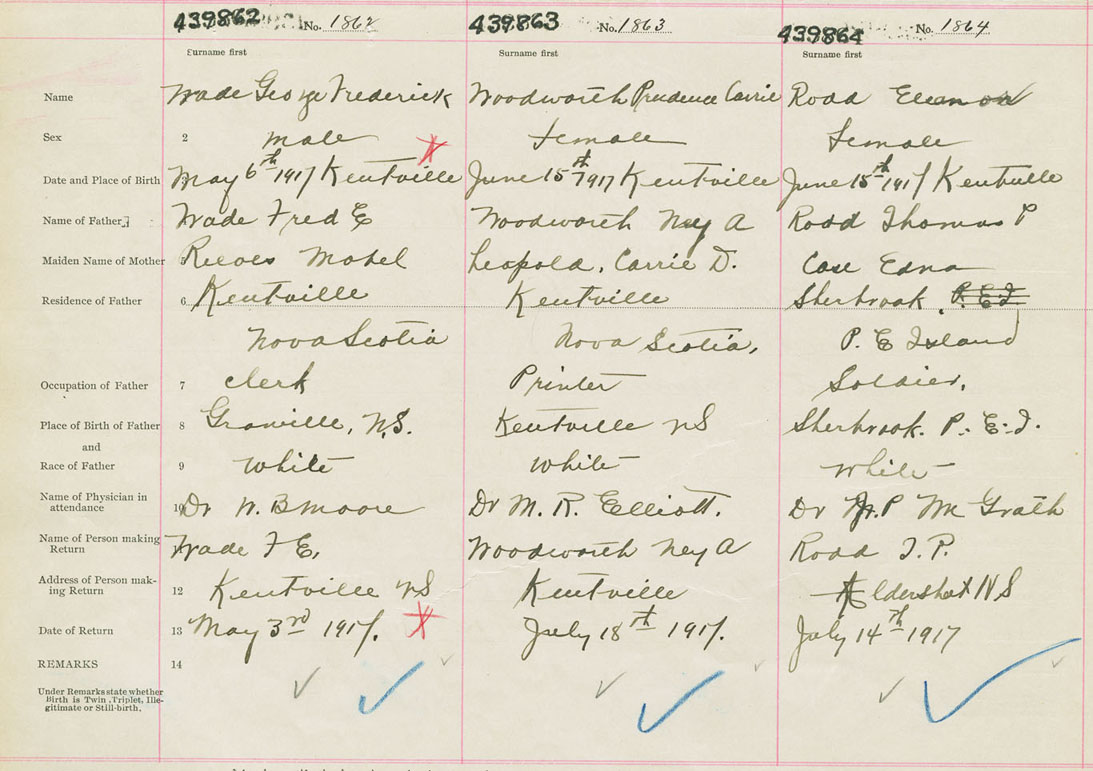 439862 No. 1862 439863 No. 1863 439864 No. 1864
Surname first Surname first Surname first
Name Wade George Frederick Woodworth Prudence Carrie Rodd Eleanor
Sex 2 male female female
Date and Place of Birth May 6th 1917 Kentville June 15th 1917 Kentville June 15th 1917 Kentville
Name of Father Wade Fred E Woodworth Ney A Rodd Thomas P
Maiden Name of Mother Reeves Mabel Leopold, Carrie D. Case Edna
Residence of Father 6 Kentville Kentville Sherbrook, P.E.I
Nova Scotia Nova Scotia, P. E Island
Occupation of Father 7 Clerk Printer Soldier.
Place of Birth of Father 8 Granville, N.S. Kentville NS Sherbrook. P. E. I.
and
Race of Father 9 White White White
Name of Physician in
attendance 10 Dr W. B Moore Dr M. R. Elliott. Dr P McGrath
Name of Person making
Return Wade F E, Woodworth Ney A Rodd T. P.
Address of Person mak-
ing Return 12 Kentville NS Kentville Aldershot NS
Date of Return 13 May 3rd 1917. July 18th 1917. July 14th 1917
REMARKS 14
Under Remarks state whether
Birth is Twin, Triplet, Ille-
gitimate or Still-birth.